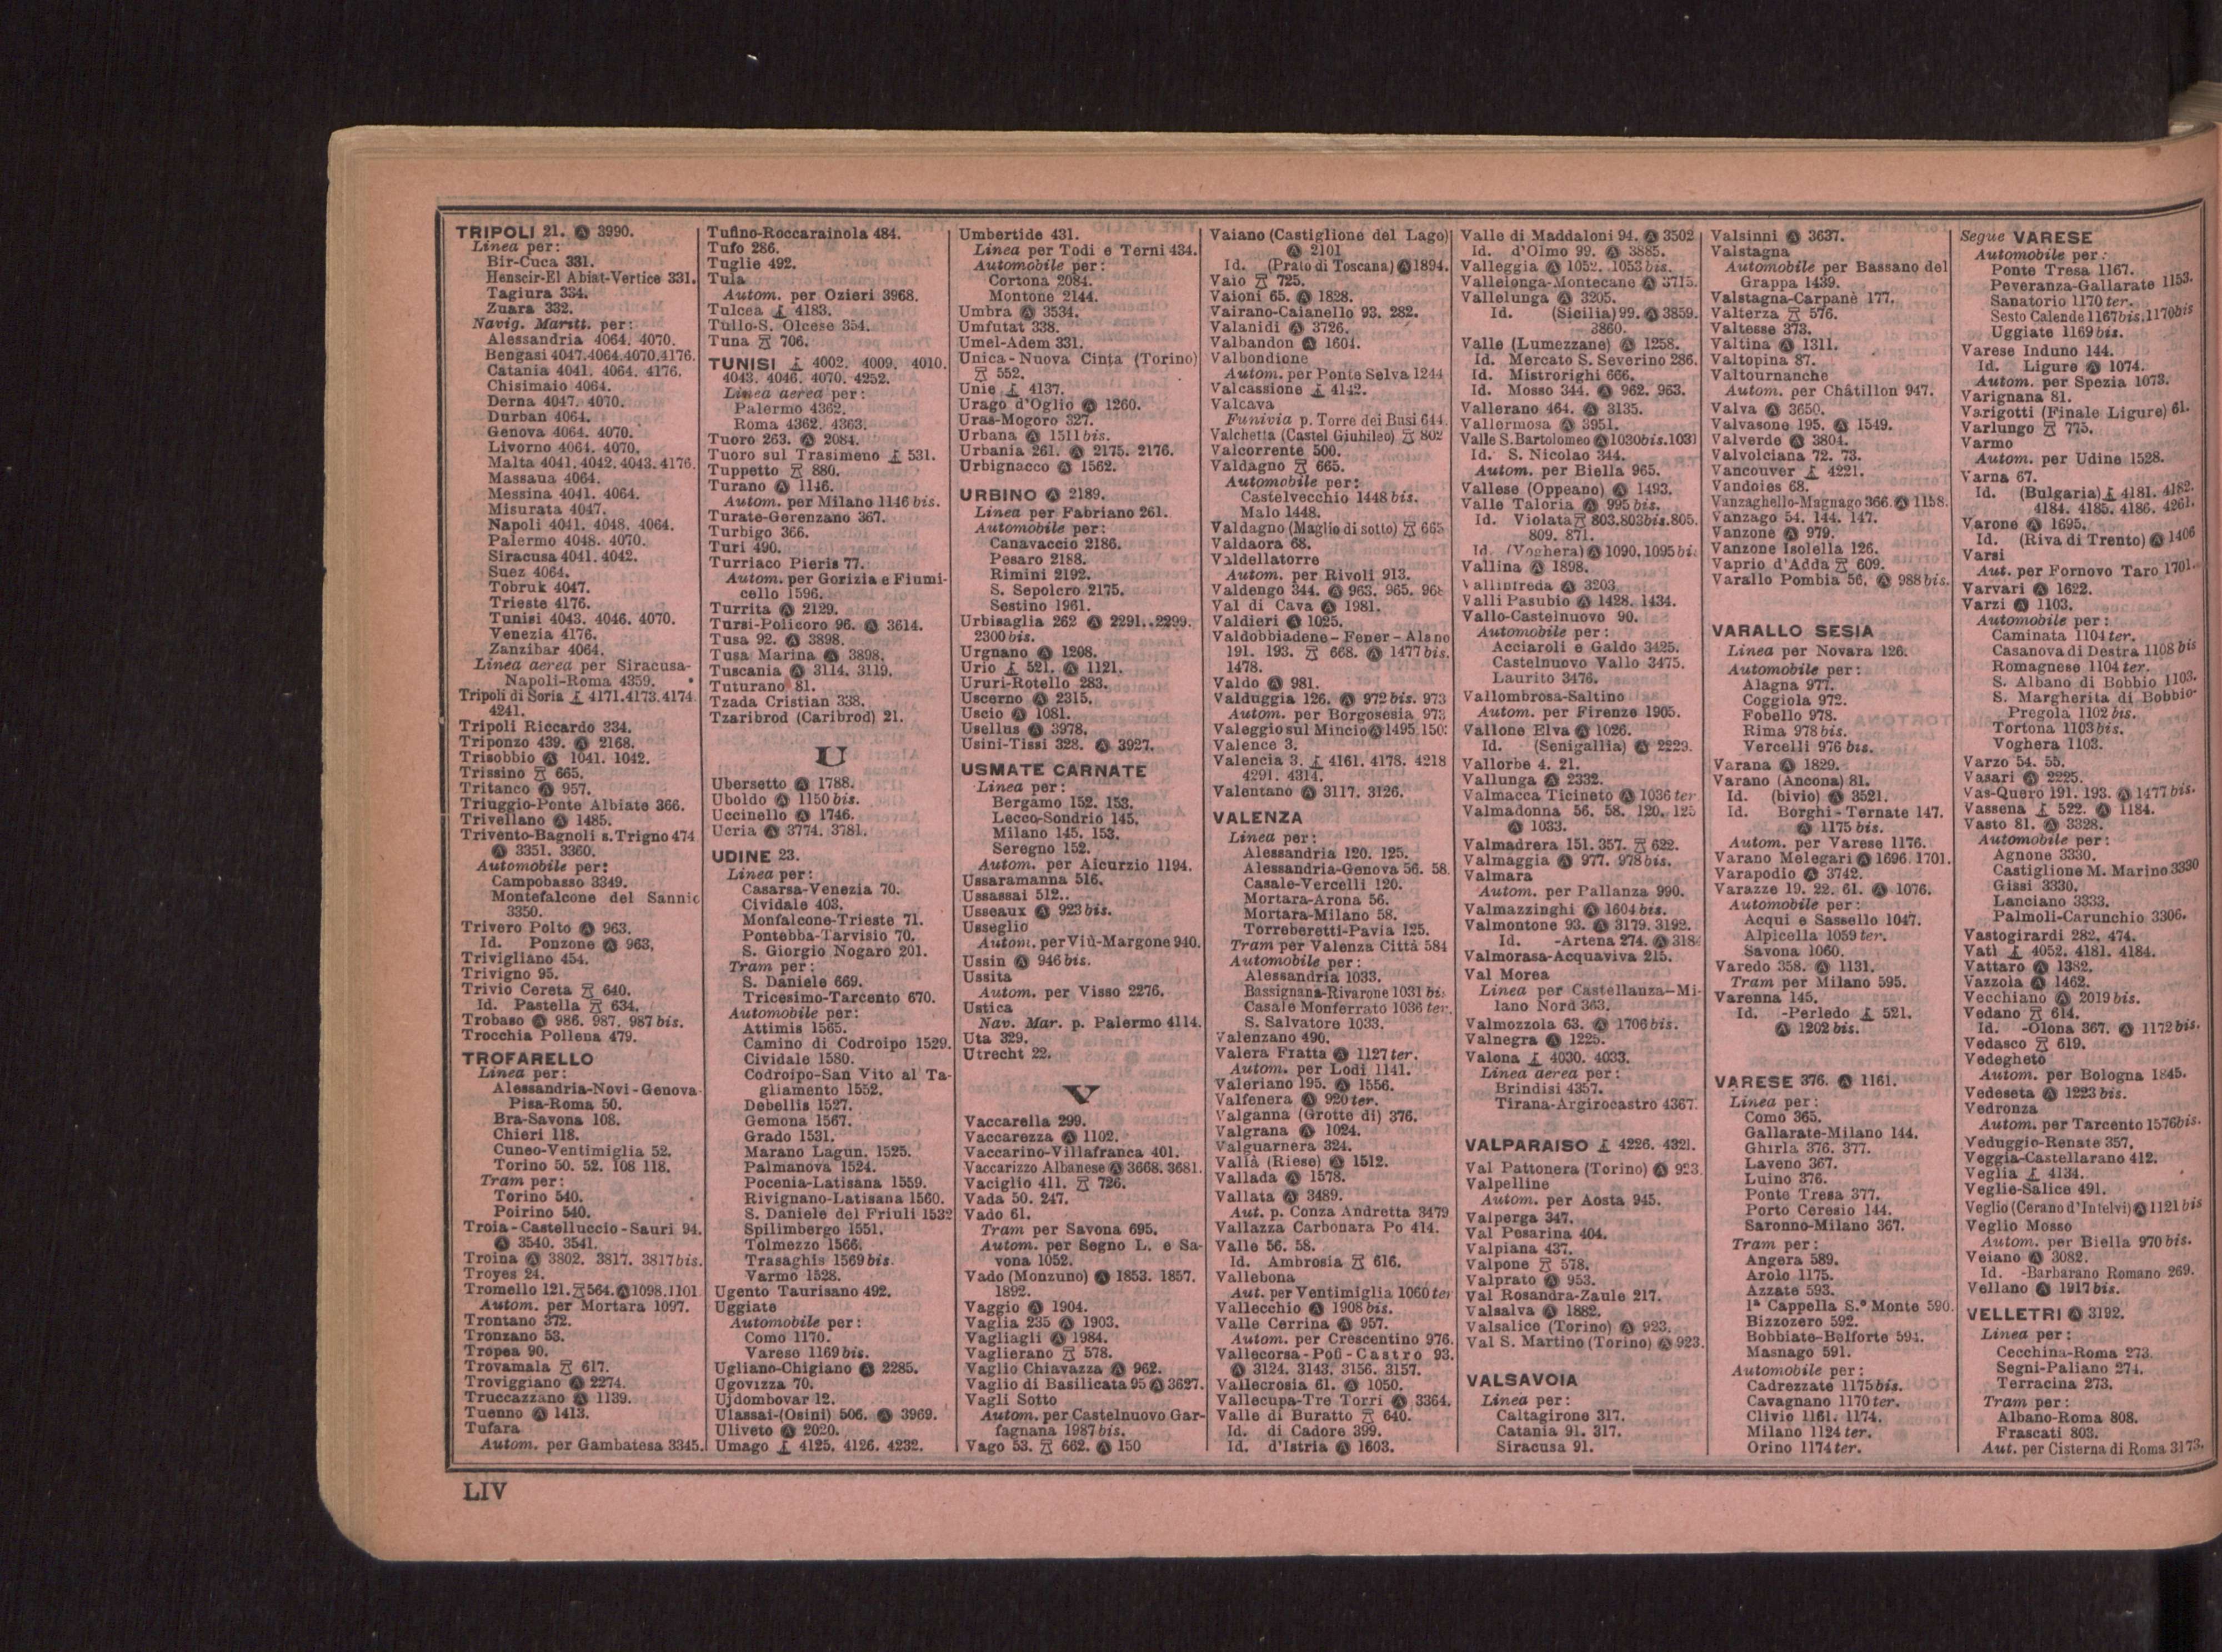 TRIPOLI 21. Ⓐ 3990.
Linea per:
Bir-Cuca 331.
Henscir-El Abiat-Vertice 331.
Tagiura 334.
Zuara 332.
Navig. Maritt. per:
Alessandria 4064. 4070.
Bengasi 4047.4064.4070.4176.
Catania 4041. 4064. 4176.
Chisimaio 4064.
Derna 4047. 4070.
Durban 4064.
Genova 4064. 4070.
Livorno 4064. 4070.
Malta 4041. 4042. 4043. 4176.
Massaua 4064.
Messina 4041. 4064.
Misurata 4047.
Napoli 4041. 4048. 4064.
Palermo 4048. 4070.
Siracusa 4041. 4042.
Suez 4064.
Tobruk 4047.
Trieste 4176.
Tunisi 4043. 4046. 4070.
Venezia 4176.
Zanzibar 4064.
Linea aerea per Siracusa-
Napoli-Roma 4359.
Tripoli di Soria 4171.4173.4174.
4241.
Tripoli Riccardo 334.
Triponzo 439. Ⓐ 2168.
Trisobbio Ⓐ 1041. 1042.
Trissino 665.
Tritanco Ⓐ 957.
Triuggio-Ponte Albiate 366.
Trivellano Ⓐ 1485.
Trivento-Bagnoli s. Trigno 474
Ⓐ 3351. 3360.
Automobile per:
Campobasso 3349.
Montefalcone del Sannio
3350.
Trivero Polto Ⓐ 963.
Id. Ponzone Ⓐ 963.
Trivigliano 454.
Trivigno 95.
Trivio Cereta 640.
Id. Pastella 634.
Trobaso Ⓐ 986. 987. 987 bis.
Trocchia Pollena 479.
TROFARELLO
Linea per:
Alessandria-Novi-Genova-
Pisa-Roma 50.
Bra-Savona 108.
Chieri 118.
Cuneo-Ventimiglia 52.
Torino 50. 52. 108 118.
Tram per:
Torino 540.
Poirino 540.
Troia-Castelluccio-Sauri 94.
Ⓐ 3540. 3541.
Troina Ⓐ 3802. 3817. 3817 bis.
Troyes 24.
Tromello 121. 564. Ⓐ 1098.1101.
Autom. per Mortara 1097.
Trontano 372.
Tronzano 53.
Tropea 90.
Trovamala 617.
Troviggiano Ⓐ 2274.
Truccazzano Ⓐ 1139.
Tuenno Ⓐ 1413.
Tufara
Autom. per Gambatesa 3345.
Tufino-Roccarainola 484.
Tufo 286.
Tuglie 492.
Tula
Autom. per Ozieri 3968.
Tulcea 4183.
Tullo-S. Olcese 354.
Tuna 706.
TUNISI 4002. 4009. 4010.
4043. 4046. 4070. 4252.
Linea aerea per:
Palermo 4362.
Roma 4362. 4363.
Tuoro 263. Ⓐ 2084.
Tuoro sul Trasimeno 531.
Tuppetto 880.
Turano Ⓐ 1146.
Autom. per Milano 1146 bis.
Turate-Gerenzano 367.
Turbigo 366.
Turi 490.
Turriaco Pieris 77.
Autom. per Gorizia e Fiumi-
cello 1596.
Turrita Ⓐ 2129.
Tursi-Policoro 96. Ⓐ 3614.
Tusa 92. Ⓐ 3898.
Tusa Marina Ⓐ 3898.
Tuscania Ⓐ 3114. 3119.
Tuturano 81.
Tzada Cristian 338.
Tzaribrod (Caribrod) 21.
U
Ubersetto Ⓐ 1788.
Uboldo Ⓐ 1150 bis.
Uccinello Ⓐ 1746.
Ucria Ⓐ 3774. 3781.
UDINE 23.
Linea per:
Casarsa-Venezia 70.
Cividale 403.
Monfalcone-Trieste 71.
Pontebba-Tarvisio 70.
S. Giorgio Nogaro 201.
Tram per:
S. Daniele 669.
Tricesimo-Tarcento 670.
Automobile per:
Attimis 1565.
Camino di Codroipo 1529.
Cividale 1580.
Codroipo-San Vito al Ta-
gliamento 1552.
Debellis 1527.
Gemona 1567.
Grado 1531.
Marano Lagun. 1525.
Palmanova 1524.
Pocenia-Latisana 1559.
Rivignano-Latisana 1560.
S. Daniele del Friuli 1532
Spilimbergo 1551.
Tolmezzo 1566.
Trasaghis 1569 bis.
Varmo 1528.
Ugento Taurisano 492.
Uggiate
Automobile per:
Como 1170.
Varese 1169 bis.
Ugliano-Chigiano Ⓐ 2285.
Ugovizza 70.
Ujdombovar 12.
Ulassai-(Osini) 506. Ⓐ 3969.
Uliveto Ⓐ 2020.
Umago 4125. 4126. 4232.
Umbertide 431.
Linea per Todi e Terni 434.
Automobile per:
Cortona 2084.
Montone 2144.
Umbra Ⓐ 3534.
Umfutat 338.
Umel-Adem 331.
Unica-Nuova Cinta (Torino)
552.
Unie 4137.
Urago d'Oglio Ⓐ 1260.
Uras-Mogoro 327.
Urbana Ⓐ 1511 bis.
Urbania 261. Ⓐ 2175. 2176.
Urbignacco Ⓐ 1562.
URBINO Ⓐ 2189.
Linea per Fabriano 261.
Automobile per:
Canavaccio 2186.
Pesaro 2188.
Rimini 2192.
S. Sepolcro 2175.
Sestino 1961.
Urbisaglia 262 Ⓐ 2291..2299.
2300 bis.
Urgnano Ⓐ 1208.
Urio 521. Ⓐ 1121.
Ururi-Rotello 283.
Uscerno Ⓐ 2315.
Uscio Ⓐ 1081.
Usellus Ⓐ 3978.
Usini-Tissi 328. Ⓐ 3927.
USMATE CARNATE
Linea per:
Bergamo 152. 153.
Lecco-Sondrio 145.
Milano 145. 153.
Seregno 152.
Autom. per Aicurzio 1194.
Ussaramanna 516.
Ussassai 512..
Usseaux Ⓐ 923 bis.
Usseglio
Autom. per Viù-Margone 940.
Ussin Ⓐ 946 bis.
Ussita
Autom. per Visso 2276.
Ustica
Nav. Mar. p. Palermo 4114.
Uta 329.
Utrecht 22.
V
Vaccarella 299.
Vaccarezza Ⓐ 1102.
Vaccarino-Villafranca 401.
Vaccarizzo Albanese Ⓐ 3668. 3681.
Vaciglio 411. 726.
Vada 50. 247.
Vado 61.
Tram per Savona 695.
Autom. per Segno L. e Sa-
vona 1052.
Vado (Monzuno) Ⓐ 1853. 1857.
1892.
Vaggio Ⓐ 1904.
Vaglia 235 Ⓐ 1903.
Vagliagli Ⓐ 1984.
Vaglierano 578.
Vaglio Chiavazza Ⓐ 962.
Vaglio di Basilicata 95 Ⓐ 3627.
Vagli Sotto
Autom. per Castelnuovo Gar-
fagnana 1987 bis.
Vago 53. 662. Ⓐ 150
Vaiano (Castiglione del Lago)
Ⓐ 2101
Id. (Prato di Toscana) Ⓐ 1894.
Vaio 725.
Vaioni 65. Ⓐ 1828.
Vairano-Caianello 93. 282.
Valanidi Ⓐ 3726.
Valbandon Ⓐ 1604.
Valbondione
Autom. per Ponte Selva 1244
Valcassione 4142.
Valcava
Funivia p. Torre dei Busi 644.
Valchetta (Castel Giubileo) 802
Valcorrente 500.
Valdagno 665.
Automobile per:
Castelvecchio 1448 bis.
Malo 1448.
Valdagno (Maglio di sotto) 665
Valdaora 68.
Valdellatorre
Autom. per Rivoli 913.
Valdengo 344. Ⓐ 963. 965. 968
Val di Cava Ⓐ 1981.
Valdieri Ⓐ 1025.
Valdobbiadene-Fener-Alano
191. 193. 668. Ⓐ 1477 bis.
1478.
Valdo Ⓐ 981.
Valduggia 126. Ⓐ 972 bis. 973
Autom. per Borgosesia 973
Valeggio sul Mincio Ⓐ 1495.
Valence 3.
Valencia 3. 4161. 4178. 4218
4291. 4314.
Valentano Ⓐ 3117. 3126.
VALENZA
Linea per:
Alessandria 120. 125.
Alessandria-Genova 56. 58.
Casale-Vercelli 120.
Mortara-Arona 56.
Mortara-Milano 58.
Torreberetti-Pavia 125.
Tram per Valenza Città 584
Automobile per:
Alessandria 1033.
Bassignana-Rivarone 1031 bis
Casale Monferrato 1036 ter.
S. Salvatore 1033.
Valenzano 490.
Valera Fratta Ⓐ 1127 ter.
Autom. per Lodi 1141.
Valeriano 195. Ⓐ 1556.
Valfenera Ⓐ 920 ter.
Valganna (Grotte di) 376.
Valgrana Ⓐ 1024.
Valguarnera 324.
Vallà (Riese) Ⓐ 1512.
Vallada Ⓐ 1578.
Vallata Ⓐ 3489.
Aut. p. Conza Andretta 3479
Vallazza Carbonara Po 414.
Valle 56. 58.
Id. Ambrosia 616.
Vallebona
Aut. per Ventimiglia 1060 ter
Vallecchio Ⓐ 1908 bis.
Valle Cerrina Ⓐ 957.
Autom. per Crescentino 976.
Vallecorsa-Pofi-Castro 93.
Ⓐ 3124. 3143. 3156. 3157.
Vallecrosia 61. Ⓐ 1050.
Vallecupa-Tre Torri Ⓐ 3364.
Valle di Buratto 640.
Id. di Cadore 399.
Id. d'Istria Ⓐ 1603.
Valle di Maddaloni 94. Ⓐ 3502
Id. d'Olmo 99. Ⓐ 3885.
Valleggia Ⓐ 1052. 1053 bis.
Vallelonga-Montecane Ⓐ 3715.
Vallelunga Ⓐ 3205.
Id. (Sicilia) 99. Ⓐ 3859.
3860.
Valle (Lumezzane) Ⓐ 1258.
Id. Mercato S. Severino 286.
Id. Mistrorighi 666.
Id. Mosso 344. Ⓐ 962. 963.
Vallerano 464. Ⓐ 3135.
Vallermosa Ⓐ 3951.
Valle S. Bartolomeo Ⓐ 1030bis.1031
Id. S. Nicolao 344.
Autom. per Biella 965.
Vallese (Oppeano) Ⓐ 1493.
Valle Taloria Ⓐ 995 bis.
Id. Violata 803.803bis.805.
809. 871.
Id. (Voghera) Ⓐ 1090. 1095 bis
Vallina Ⓐ 1898.
Vallinfreda Ⓐ 3203
Valli Pasubio Ⓐ 1428. 1434.
Vallo-Castelnuovo 90.
Automobile per:
Acciaroli e Galdo 3425.
Castelnuovo Vallo 3475.
Laurito 3476.
Vallombrosa-Saltino
Autom. per Firenze 1905.
Vallone Elva Ⓐ 1026.
Id. (Senigallia) Ⓐ 2229.
Vallorbe 4. 21.
Vallunga Ⓐ 2332.
Valmacca Ticineto Ⓐ 1036 ter
Valmadonna 56. 58. 120. 125
Ⓐ 1033.
Valmadrera 151. 357. 622.
Valmaggia Ⓐ 977. 978 bis.
Valmara
Autom. per Pallanza 990.
Valmazzinghi Ⓐ 1604 bis.
Valmontone 93. Ⓐ 3179. 3192.
Id. -Artena 274. Ⓐ
Valmorasa-Acquaviva 215.
Val Morea
Linea per Castellanza-Mi-
lano Nord 363.
Valmozzola 63. Ⓐ 1706 bis.
Valnegra Ⓐ 1225.
Valona 4030. 4033.
Linea aerea per:
Brindisi 4357.
Tirana-Argirocastro 4367.
VALPARAISO 4226. 4321.
Val Pattonera (Torino) Ⓐ 923.
Valpelline
Autom. per Aosta 945.
Valperga 347.
Val Pesarina 404.
Valpiana 437.
Valpone 578.
Valprato Ⓐ 953.
Val Rosandra-Zaule 217.
Valsalva Ⓐ 1882.
Valsalice (Torino) Ⓐ 923.
Val S. Martino (Torino) Ⓐ 923.
VALSAVOIA
Linea per:
Caltagirone 317.
Catania 91. 317.
Siracusa 91.
Valsinni Ⓐ 3637.
Valstagna
Automobile per Bassano del
Grappa 1439.
Valstagna-Carpanè 177.
Valterza 576.
Valtesse 373.
Valtina Ⓐ 1311.
Valtopina 87.
Valtournanche
Autom. per Châtillon 947.
Valva Ⓐ 3650.
Valvasone 195. Ⓐ 1549.
Valverde Ⓐ 3804.
Valvolciana 72. 73.
Vancouver 4221.
Vandoies 68.
Vanzaghello-Magnago 366. Ⓐ 1158.
Vanzago 54. 144. 147.
Vanzone Ⓐ 979.
Vanzone Isolella 126.
Vaprio d'Adda 609.
Varallo Pombia 56. Ⓐ 988 bis.
VARALLO SESIA
Linea per Novara 126.
Automobile per:
Alagna 977.
Coggiola 972.
Fobello 978.
Rima 978 bis.
Vercelli 976 bis.
Varana Ⓐ 1829.
Varano (Ancona) 81.
Id. (bivio) Ⓐ 3521.
Id. Borghi-Ternate 147.
Ⓐ 1175 bis.
Autom. per Varese 1176.
Varano Melegari Ⓐ 1696. 1701.
Varapodio Ⓐ 3742.
Varazze 19. 22. 61. Ⓐ 1076.
Automobile per:
Acqui e Sassello 1047.
Alpicella 1059 ter.
Savona 1060.
Varedo 358. Ⓐ 1131.
Tram per Milano 595.
Varenna 145.
Id. -Perledo 521.
Ⓐ 1202 bis.
VARESE 376. Ⓐ 1161.
Linea per:
Como 365.
Gallarate-Milano 144.
Ghirla 376. 377.
Laveno 367.
Luino 376.
Ponte Tresa 377.
Porto Ceresio 144.
Saronno-Milano 367.
Tram per:
Angera 589.
Arolo 1175.
Azzate 593.
1ª Cappella S.º Monte 590.
Bizzozero 592.
Bobbiate-Belforte 594.
Masnago 591.
Automobile per:
Cadrezzate 1175 bis.
Cavagnano 1170 ter.
Clivio 1161. 1174.
Milano 1124 ter.
Orino 1174 ter.
Segue VARESE
Automobile per:
Ponte Tresa 1167.
Peveranza-Gallarate 1153.
Sanatorio 1170 ter.
Sesto Calende 1167bis.1170bis
Uggiate 1169 bis.
Varese Induno 144.
Id. Ligure Ⓐ 1074.
Autom. per Spezia 1073.
Varignana 81.
Varigotti (Finale Ligure) 61.
Varlungo 775.
Varmo
Autom. per Udine 1528.
Varna 67.
Id. (Bulgaria) 4181. 4182.
4184. 4185. 4186. 4261.
Varone Ⓐ 1695.
Id. (Riva di Trento) Ⓐ 1406
Varsi
Aut. per Fornovo Taro 1701.
Varvari Ⓐ 1622.
Varzi Ⓐ 1103.
Automobile per:
Caminata 1104 ter.
Casanova di Destra 1108 bis
Romagnese 1104 ter.
S. Albano di Bobbio 1103.
S. Margherita di Bobbio-
Pregola 1102 bis.
Tortona 1103 bis.
Voghera 1103.
Varzo 54. 55.
Vasari Ⓐ 2225.
Vas-Quero 191. 193. Ⓐ 1477 bis.
Vassena 522. Ⓐ 1184.
Vasto 81. Ⓐ 3328.
Automobile per:
Agnone 3330.
Castiglione M. Marino 3330
Gissi 3330.
Lanciano 3333.
Palmoli-Carunchio 3306.
Vastogirardi 282. 474.
Vatì 4052. 4181. 4184.
Vattaro Ⓐ 1382.
Vazzola Ⓐ 1462.
Vecchiano Ⓐ 2019 bis.
Vedano 614.
Id. -Olona 367. Ⓐ 1172 bis.
Vedasco 619.
Vedegheto
Autom. per Bologna 1845.
Vedeseta Ⓐ 1223 bis.
Vedronza
Autom. per Tarcento 1576bis.
Veduggio-Renate 357.
Veggia-Castellarano 412.
Veglia 4134.
Veglie-Salice 491.
Veglio (Cerano d'Intelvi) Ⓐ 1121 bis
Veglio Mosso
Autom. per Biella 970 bis.
Veiano Ⓐ 3082.
Id. -Barbarano Romano 269.
Vellano Ⓐ 1917 bis.
VELLETRI Ⓐ 3192.
Linea per:
Cecchina-Roma 273.
Segni-Paliano 274.
Terracina 273.
Tram per:
Albano-Roma 808.
Frascati 803.
Aut. per Cisterna di Roma 3173.
LIV